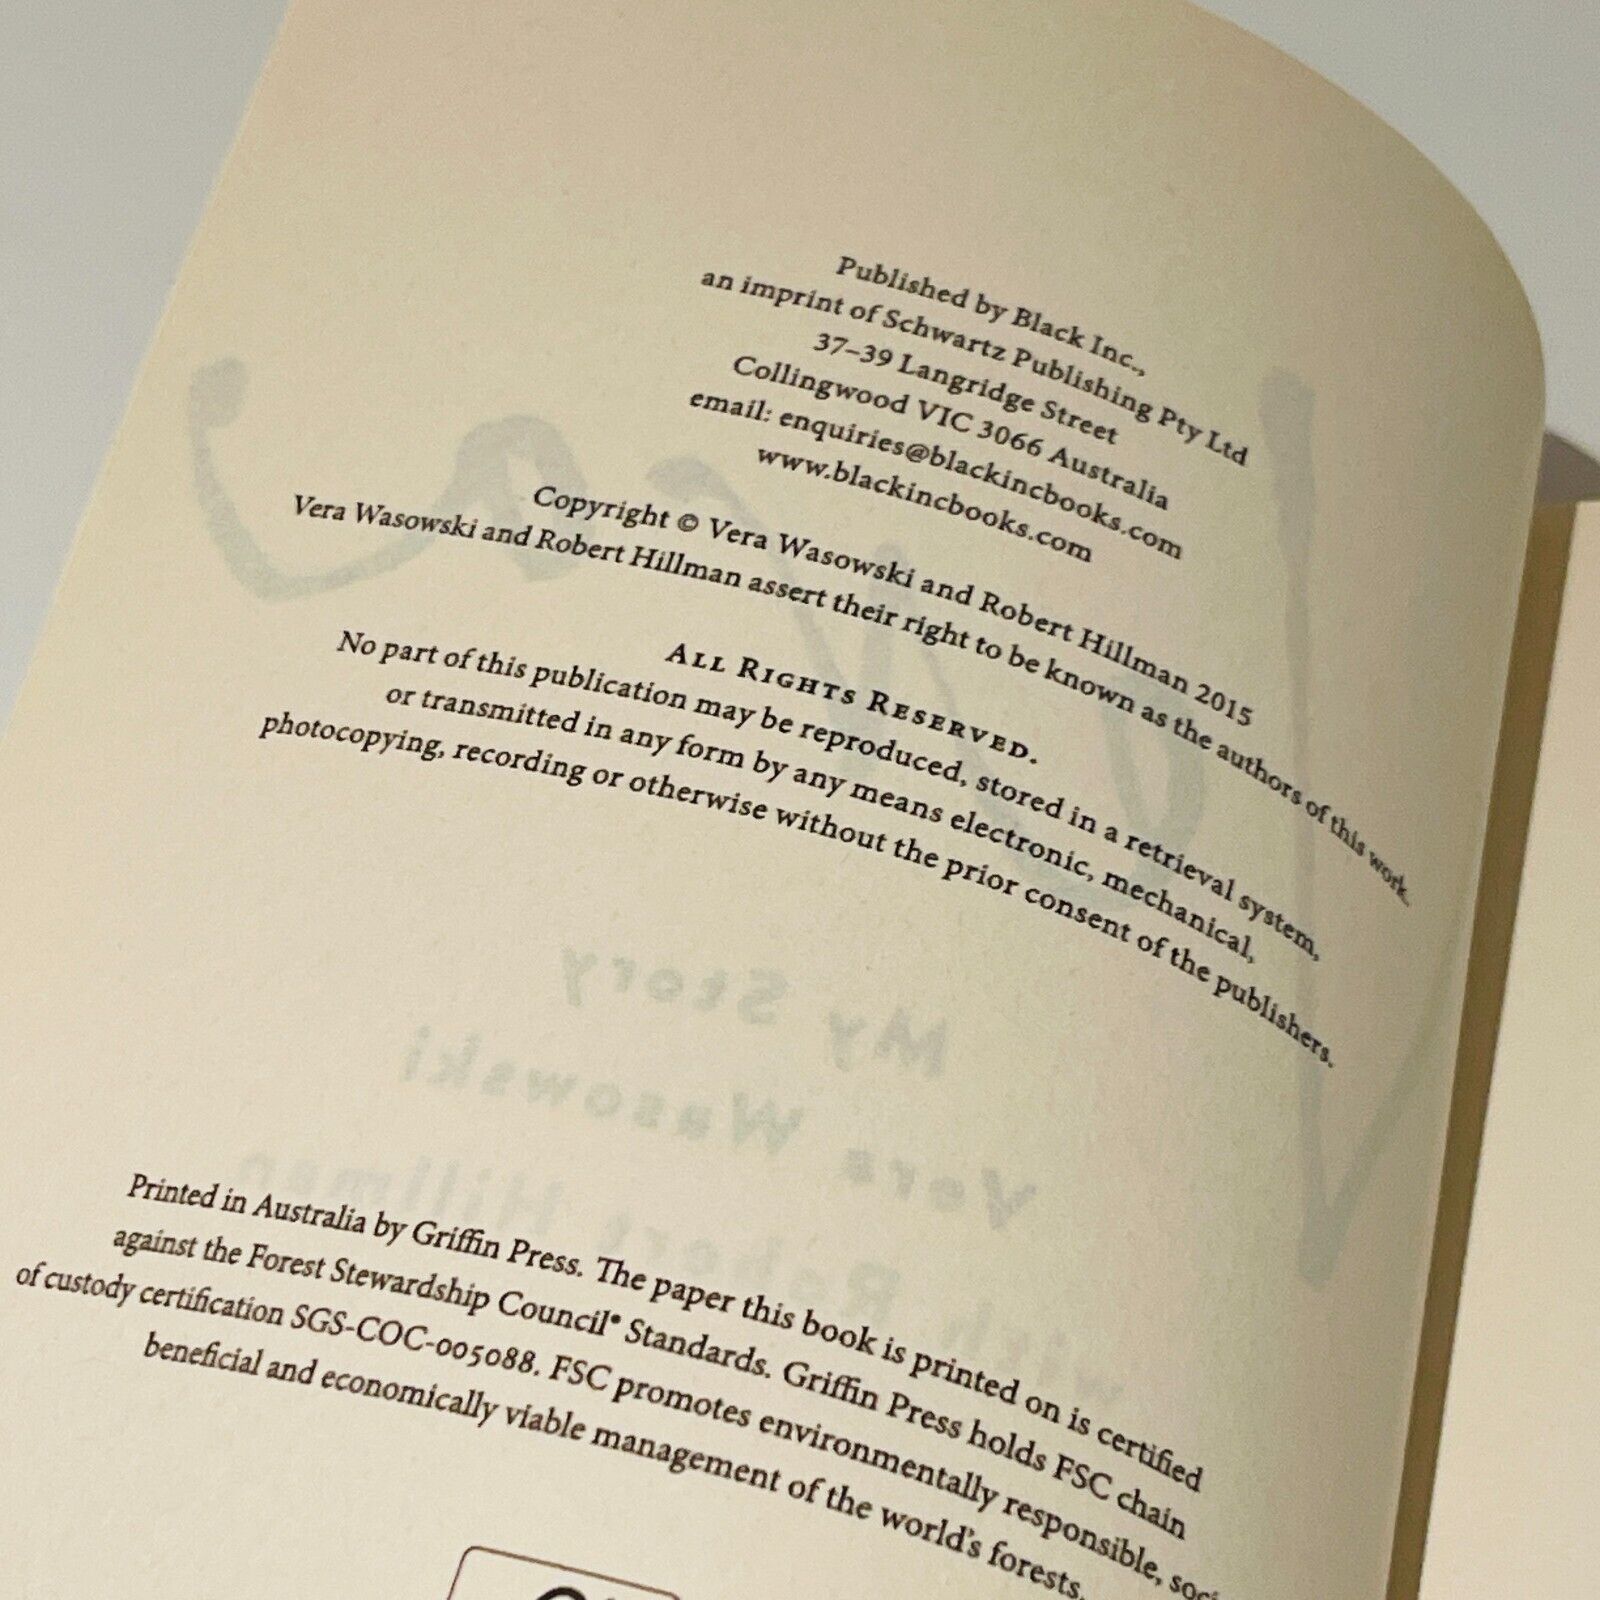 Published by Black Inc.,
an imprint of Schwartz Publishing Pty Ltd
37–39 Langridge Street
Collingwood VIC 3066 Australia
email: enquiries@blackincbooks.com
www.blackincbooks.com
Copyright © Vera Wasowski and Robert Hillman 2015
Vera Wasowski and Robert Hillman assert their right to be known as the authors of this work.
ALL RIGHTS RESERVED.
No part of this publication may be reproduced, stored in a retrieval system,
or transmitted in any form by any means electronic, mechanical,
photocopying, recording or otherwise without the prior consent of the publishers.
My Story
Vera Wasowski
with Robert Hillman
Printed in Australia by Griffin Press. The paper this book is printed on is certified
against the Forest Stewardship Council® Standards. Griffin Press holds FSC chain
of custody certification SGS-COC-005088. FSC promotes environmentally responsible,
beneficial and economically viable management of the world's forests.